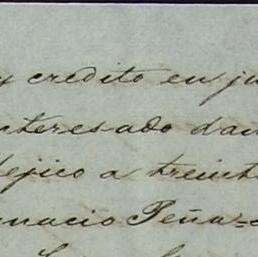 y credito en ju
nteresado dan
ejico a treint
nacio Peña=